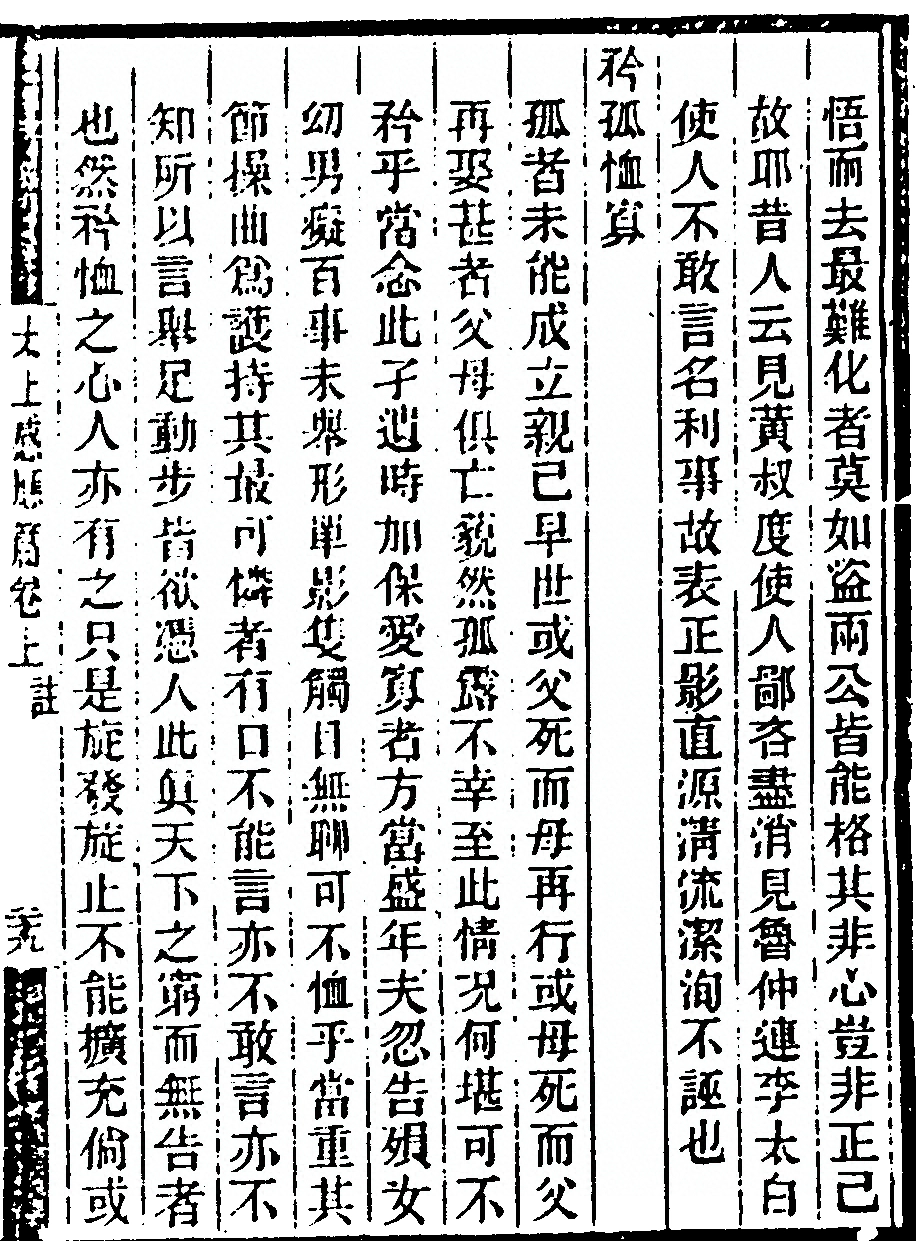 悟而去最難化者莫如盜兩公皆能格其非心豈非正己
故耶昔人云見黃叔度使人鄙吝盡消見魯仲連李太白
使人不敢言名利事故表正影直源清流潔洵不誣也
矜孤恤寡
孤者未能成立親已早世或父死而母再行或母死而父
再娶甚者父母俱亡藐然孤露不幸至此情况何堪可不
矜乎當念此孑遺時加保愛寡者方當盛年夫忽告殞女
幼男癡百事未舉形單影隻觸目無聊可不恤乎當重其
節操曲為護持其最可憐者有口不能言亦不敢言亦不
知所以言舉足動步皆欲慿人此眞天下之窮而無告者
也然矜恤之心人亦有之只是旋發旋止不能擴充倘或
太上感應篇卷上 註
二十九